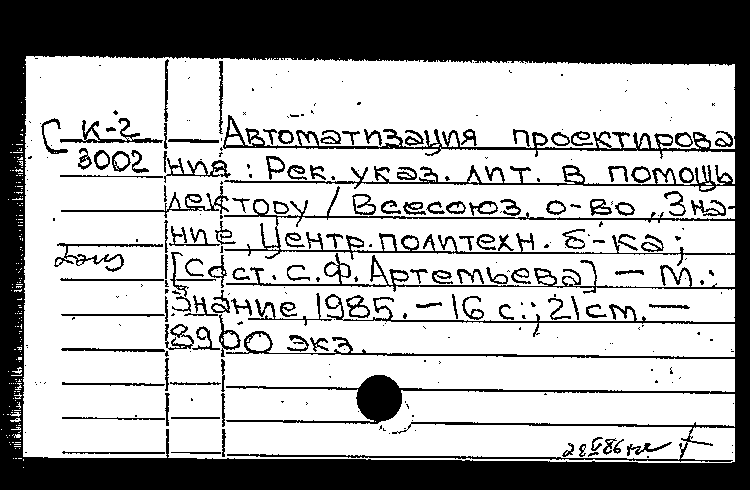 С К-2 Автоматизация проектирова
3002 ния : Рек. указ. лит. в помощь
лектору / Всесоюз. о-во „Зна-
ние, Центр. политехн. б-ка ;
[Сост. С.Ф. Артемьева] — М.:
Знание, 1985. — 16 с.; 21 см. —
8900 экз.